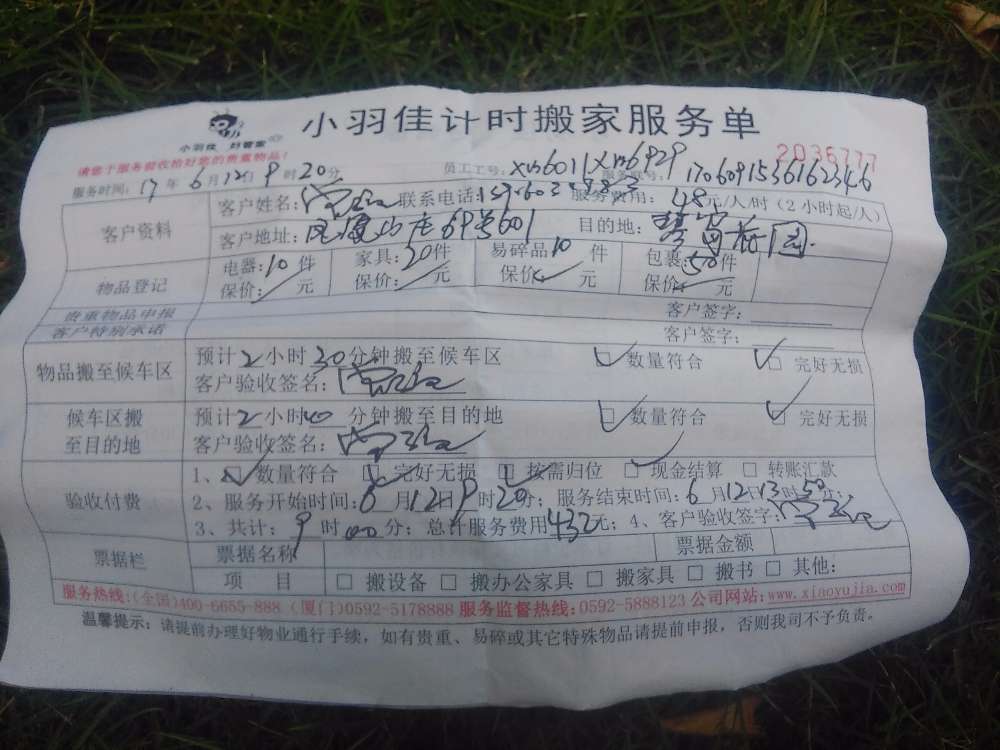 小羽佳计时搬家服务单
小羽佳 好管家
请您于服务验收恰好您的贵重物品!
2035777
员工工号: xm6011 xm6929 服务账号: 1706091536162346
服务时间: 17年6月12日9时20分
客户资料
客户姓名: 联系电话: 服务费用: 48元/人/时(2小时起/人)
客户地址: 69号601 目的地: 花园
物品登记
电器:10件 家具:20件 易碎品10件 包裹:50件
保价: 元 保价: 元 保价 元 保价: 元
贵重物品申报 客户签字:
客户特别承诺 客户签字:
物品搬至候车区
预计2小时30分钟搬至候车区 数量符合 完好无损
客户验收签名:
候车区搬至目的地
预计2小时40分钟搬至目的地 数量符合 完好无损
客户验收签名:
验收付费
1、数量符合 完好无损 按需归位 现金结算 转账汇款
2、服务开始时间:6月12日9时20分; 服务结束时间:6月12日13时50分
3、共计:9时00分; 总计服务费用432元; 4、客户验收签字:
票据栏
票据名称 票据金额
项目 搬设备 搬办公家具 搬家具 搬书 其他:
服务热线:(全国)400-6655-888 (厦门)0592-5178888 服务监督热线:0592-5888123 公司网站:www.xiaoyujia.com
温馨提示: 请提前办理好物业通行手续, 如有贵重、易碎或其它特殊物品请提前申报, 否则我司不予负责。